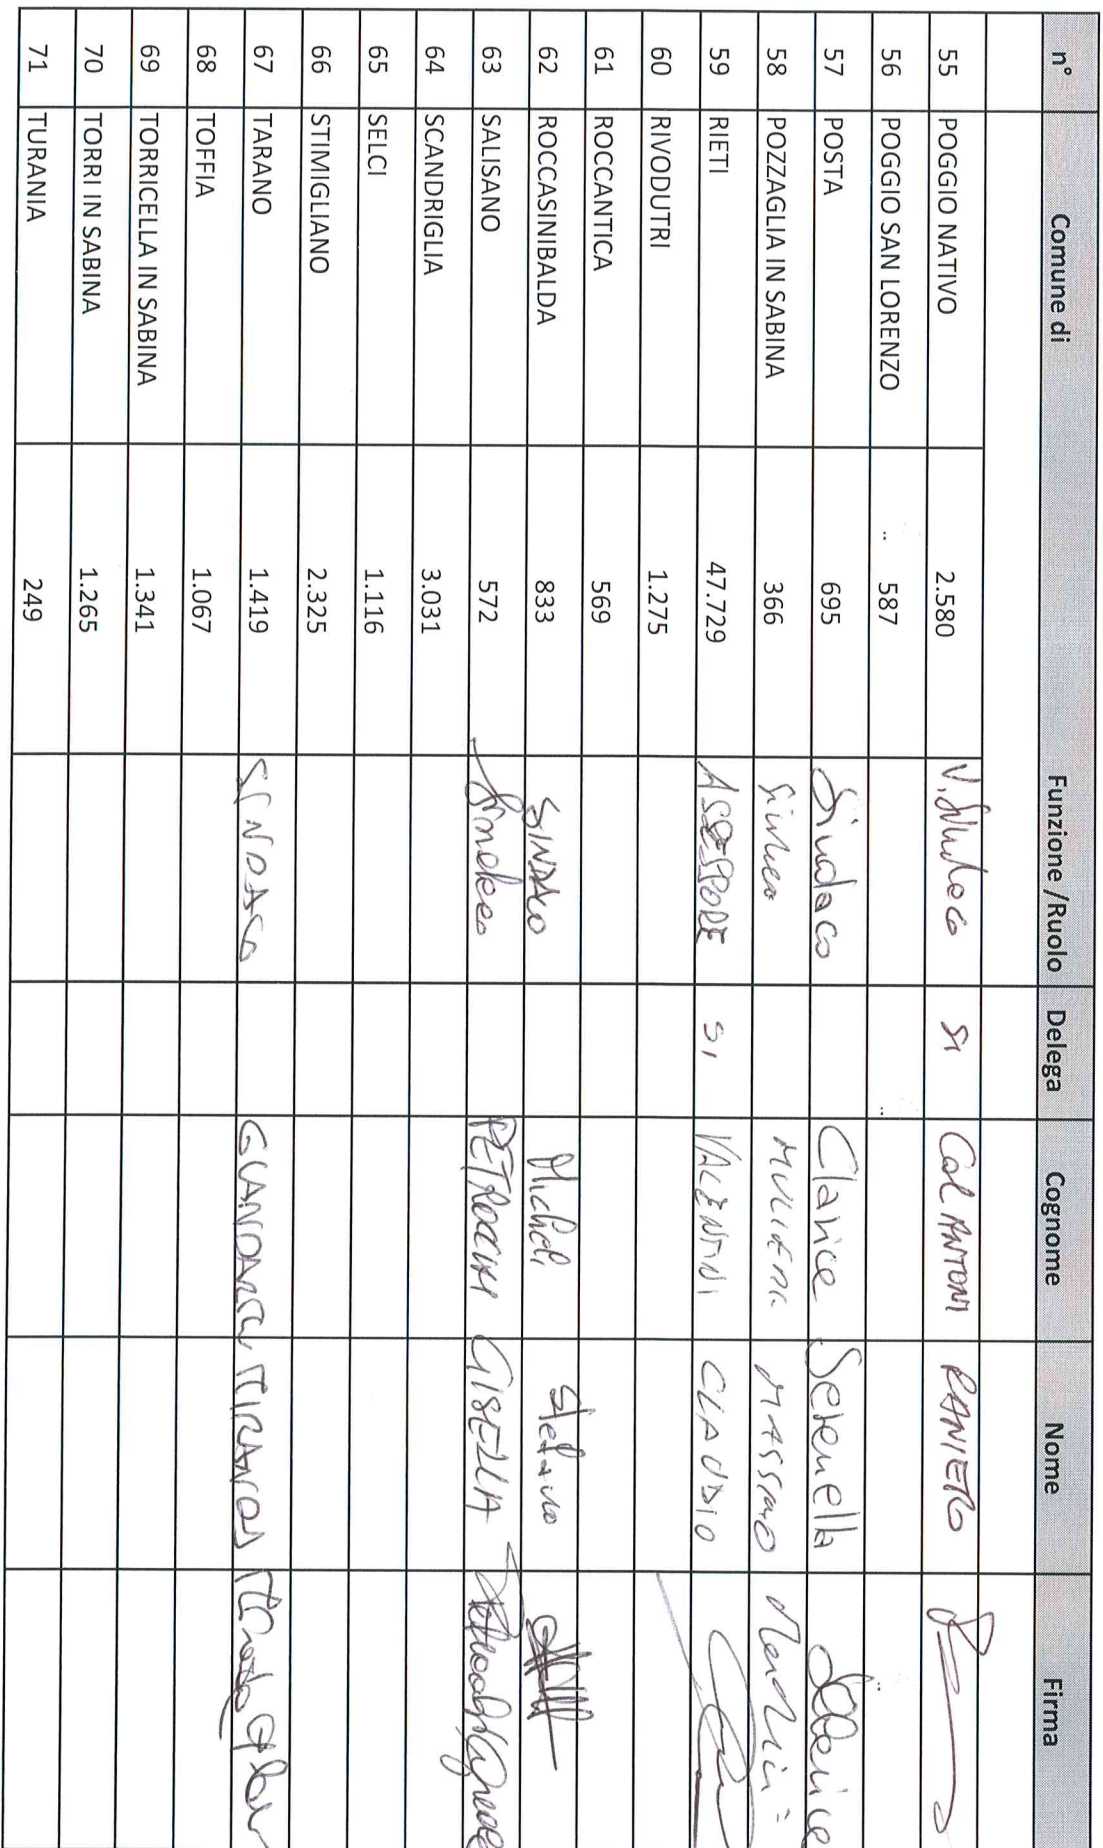 n° Comune di Funzione /Ruolo Delega Cognome Nome Firma
55 POGGIO NATIVO 2.580 V. Sindaco SI ColANTONI RANIERO
56 POGGIO SAN LORENZO 587
57 POSTA 695 Sindaco Clarice Serenella
58 POZZAGLIA IN SABINA 366 Sindaco MULIERI MASSIMO
59 RIETI 47.729 ASSESSORE SI VALENTINI CLAUDIO
60 RIVODUTRI 1.275
61 ROCCANTICA 569
62 ROCCASINIBALDA 833 SINDACO Micheli Stefano
63 SALISANO 572 Sindaco PETROCCHI GISELLA
64 SCANDRIGLIA 3.031
65 SELCI 1.116
66 STIMIGLIANO 2.325
67 TARANO 1.419 SINDACO
68 TOFFIA 1.067
69 TORRICELLA IN SABINA 1.341
70 TORRI IN SABINA 1.265
71 TURANIA 249